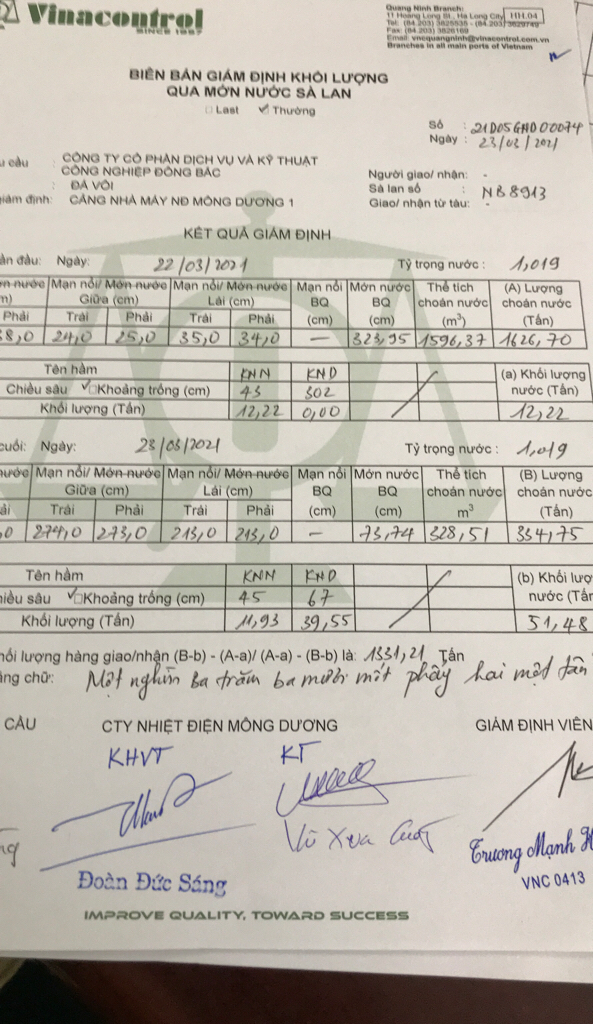 Vinacontrol
SINCE 1957
Quang Ninh Branch:
11 Hoang Long St., Ha Long City
Tel: (84.203) 3825535 - (84.203) 3829749
Fax: (84.203) 3826169
Email: vncquangninh@vinacontrol.com.vn
Branches in all main ports of Vietnam
HH.04
BIÊN BẢN GIÁM ĐỊNH KHỐI LƯỢNG
QUA MỚN NƯỚC SÀ LAN
Last Thường
Số : 21D05GHD00074
Ngày : 23/03/2021
u cầu : CÔNG TY CỔ PHẦN DỊCH VỤ VÀ KỸ THUẬT
CÔNG NGHIỆP ĐÔNG BẮC
: ĐÁ VÔI
giám định: CẢNG NHÀ MÁY NĐ MÔNG DƯƠNG 1
Người giao/ nhận: -
Sà lan số : NB 8913
Giao/ nhận từ tàu: -
KẾT QUẢ GIÁM ĐỊNH
ần đầu: Ngày: 22/03/2021 Tỷ trọng nước : 1,019
ớn nước Mạn nổi/ Mớn nước Mạn nổi/ Mớn nước Mạn nổi Mớn nước Thể tích (A) Lượng
m) Giữa (cm) Lái (cm) BQ BQ choán nước choán nước
Phải Trái Phải Trái Phải (cm) (cm) (m³) (Tấn)
38,0 24,0 25,0 35,0 34,0 — 323,95 1596,37 1626,70
Tên hầm KNN KND (a) Khối lượng
Chiều sâu Khoảng trống (cm) 43 302 nước (Tấn)
Khối lượng (Tấn) 12,22 0,00 12,22
cuối: Ngày: 23/03/2021 Tỷ trọng nước : 1,019
nước Mạn nổi/ Mớn nước Mạn nổi/ Mớn nước Mạn nổi Mớn nước Thể tích (B) Lượng
Giữa (cm) Lái (cm) BQ BQ choán nước choán nước
ải Trái Phải Trái Phải (cm) (cm) m³ (Tấn)
,0 274,0 273,0 213,0 213,0 — 73,74 328,51 334,75
Tên hầm KNN KND (b) Khối lượ
hiều sâu Khoảng trống (cm) 45 67 nước (Tấn
Khối lượng (Tấn) 11,93 39,55 51,48
hối lượng hàng giao/nhận (B-b) - (A-a)/ (A-a) - (B-b) là: 1331,21 Tấn
ằng chữ: Một nghìn ba trăm ba mươi mốt phẩy hai một tấn
CẦU CTY NHIỆT ĐIỆN MÔNG DƯƠNG GIÁM ĐỊNH VIÊN
KHVT KT
Đoàn Đức Sáng
Trương Mạnh H
VNC 0413
IMPROVE QUALITY, TOWARD SUCCESS